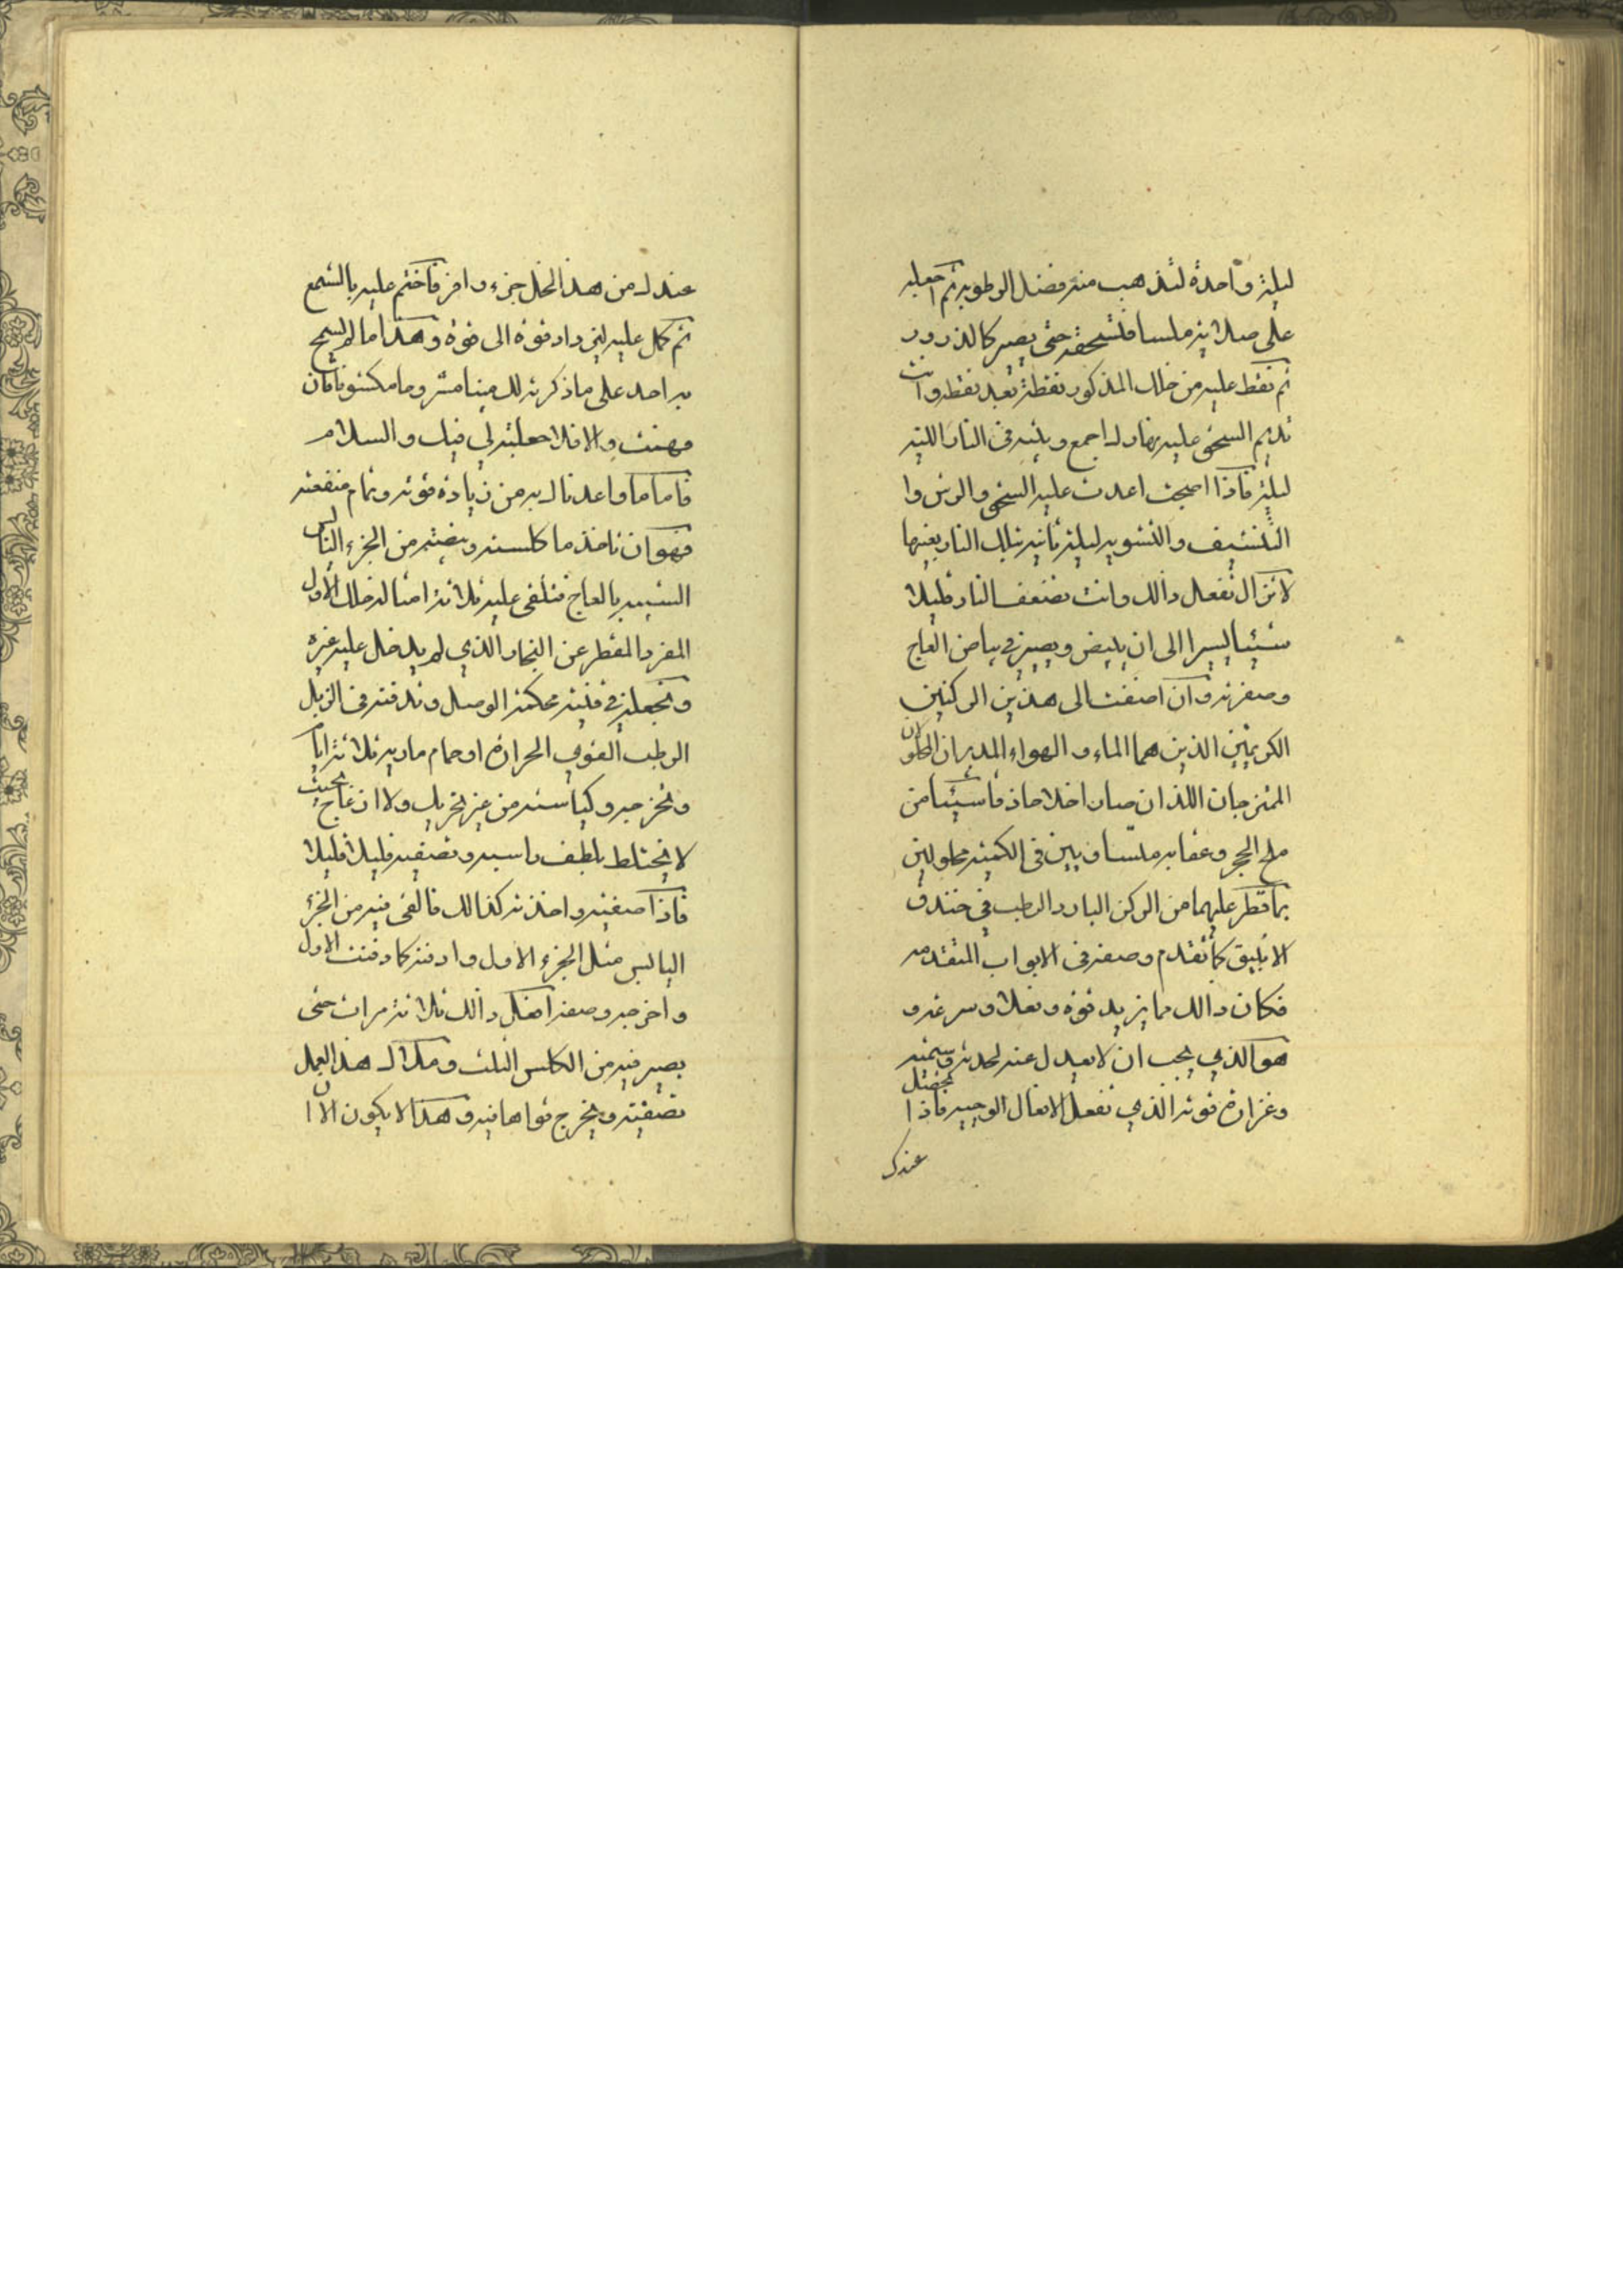 ليلة واحدة لتذهب منه فضل الرطوبة ثم اجعله
على صلاية ملسا فتسحقه حتى يصير كالذرور
ثم نقط عليه من خلك المذكور نقطة بعد نقطة وانت
تديم السحق عليه نهارك اجمع وبيته فى النار اللينه
ليلة فاذا اصبحت اعدت عليه السحق والرش وا
التنشيف والتشويه ليلة ثانيه بتلك النار بعينها
لا تزال تفعل ذالك وانت تضعف النار قليلا
شيئا يسيرا الى ان يبيض ويصير فى بياض العاج
وصفرته وان اضفت الى هذين الركنين
الكريمين الذين هما الماء والهواء المدبران المحلولان
الممتزجان اللذان صارا خلا حاذقا شيئا من
ملح الحجر وعقابه متساويين فى الكمية محلولين
بما قطر عليهما من الركن البارد الرطب فى خندق
الانبيق كما تقدم وصفه فى الابواب المتقدمه
فكان ذالك مما يزيد قوة وفعلا وسرعة و
هو الذي يجب ان لا يعدل عنه لحدته وسميته
وغزارة قوته الذي تفعل الافعال العجيبه فاذا تحصل
عندك
عندك من هذا الخل جزء وافر فاختم عليه بالشمع
ثم كل عليه لين داد قوة الى قوة وهذا ما لم يسمح
به احد على ما ذكرته لك مينا مشروحا مكشوفا فان
فهمت والا فلا حيلة لي فيك والسلام
فاما ما واعدناك به من زيادة قوته وتمام منفعته
فهو ان تاخذ ما كلسته وبيضته من الجزء اليابس
الشبيه بالعاج فتلقى عليه ثلاثة امثاله خلك الاول
المفرد المقطر عن النجار الذي لم يدخل عليه غيره
وتجعله في قنينه محكمة الوصل وتدفنه فى الزبل
الرطب القوي الحرارة او حمام ماريه ثلاثة ايام
وتخرجه وكياسته من غير تحريك ولا ازعاج بحيث
لا يختلط لطيف راسبه وتصفيه قليلا قليلا
فاذا صفيته واخذته كذالك فالقى فيه من الجزء
اليابس مثل الجزء الاول وادفنه كما دفنت الاول
واخرجه وصفه افعل ذالك ثلاثة مرات حتى
يصير فيه من الكلس الثلث وملاك هذا العمل
تصفيته ويخرج قواها فيه وهذا لا يكون الا ان